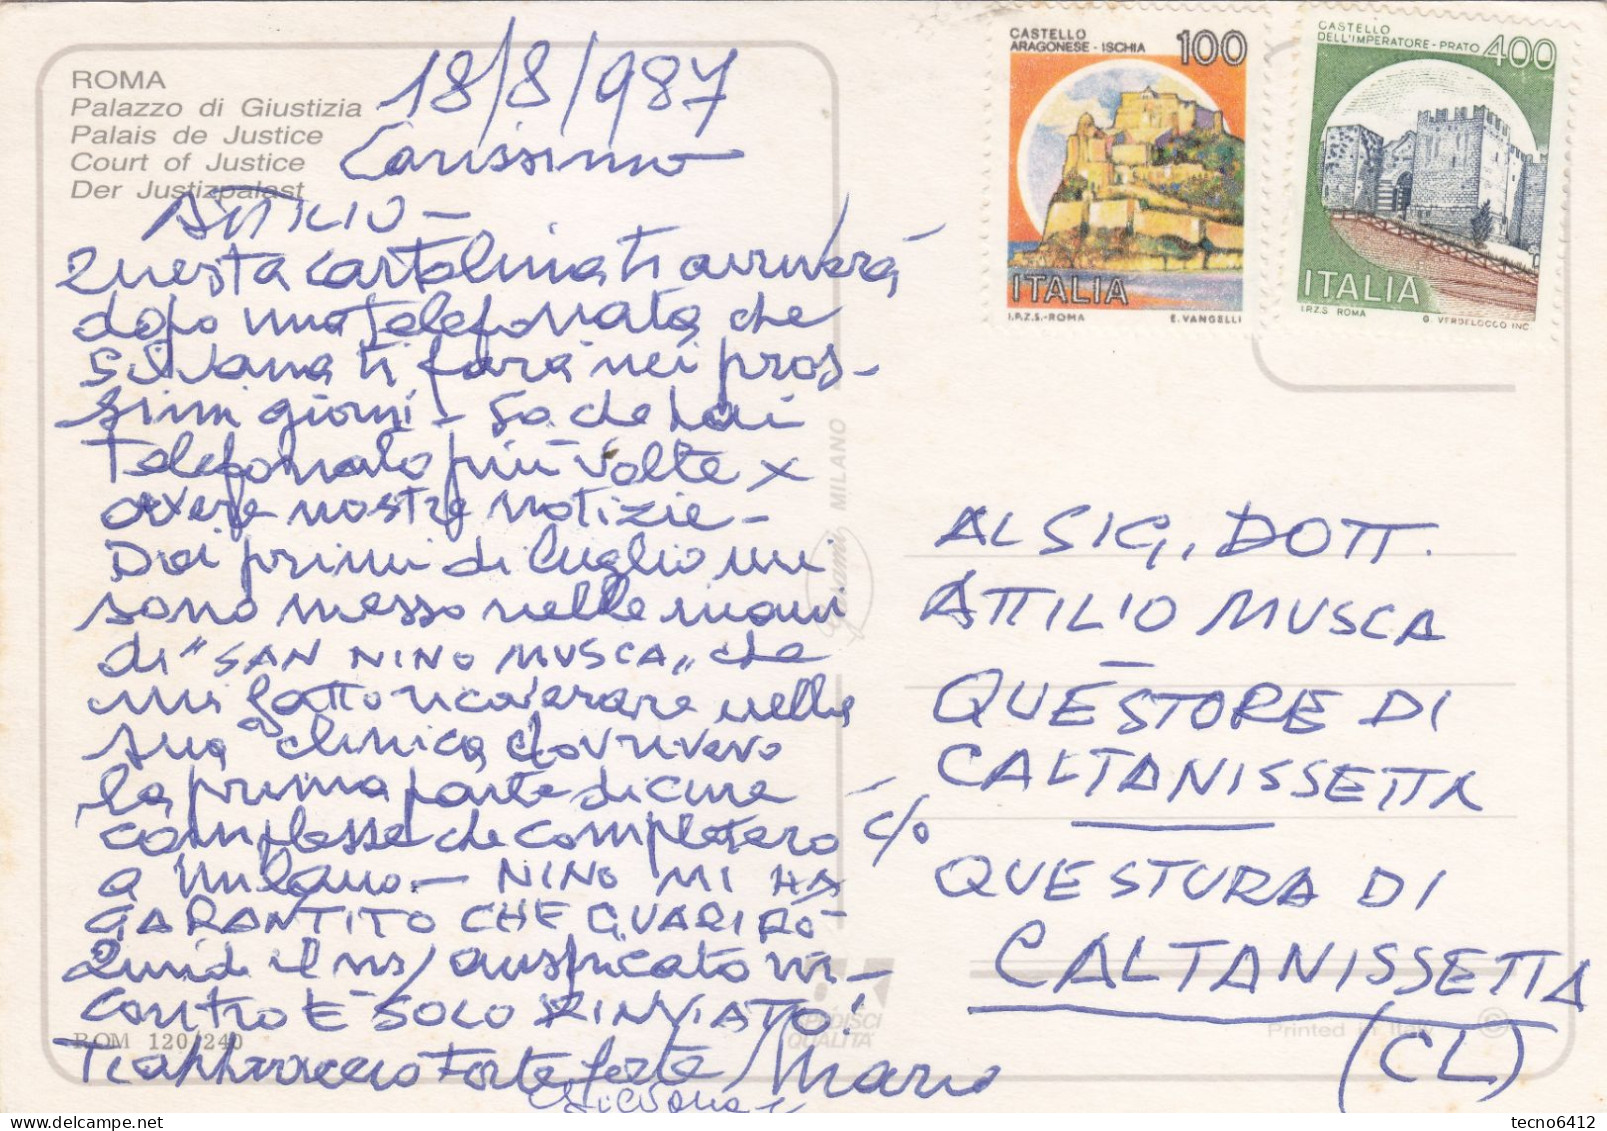 ROMA
Palazzo di Giustizia
Palais de Justice
Court of Justice
Der Justizpalast
18/8/987
Carissimo
ATTILIO -
Questa cartolina ti arriverà
dopo una telefonata che
Silvana ti farà nei pros-
simi giorni - So che hai
Telefonato più volte x
avere nostre notizie -
Dai primi di luglio mi
sono messo nelle mani
di "SAN NINO MUSCA" che
mi fatto ricoverare nella
sua clinica dov ricevero
la prima parte di cure
complesse che completerò
a Milano. - NINO MI HA
GARANTITO CHE GUARIRÒ -
Quindi il ns/ auspicato in-
contro È SOLO RINVIATO!
Ti abbraccio forte forte Mario
e Silvana
ROM 120/240
Cesami MILANO
SPEDISCI QUALITÀ
Printed in Italy ©
CASTELLO
ARAGONESE - ISCHIA 100
ITALIA
I.P.Z.S.-ROMA E. VANGELLI
CASTELLO
DELL'IMPERATORE - PRATO 400
ITALIA
I.P.Z.S. ROMA G. VERDELOCCO INC.
AL SIG. DOTT.
ATTILIO MUSCA
QUESTORE DI
CALTANISSETTA
c/o
QUESTURA DI
CALTANISSETTA
(CL)
tecno6412